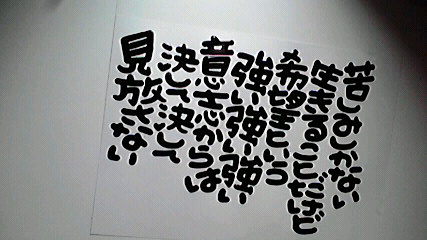 苦しみしかない
生きることだけど
希望という
強い強い強い
意志からは
決して決して
見放さない